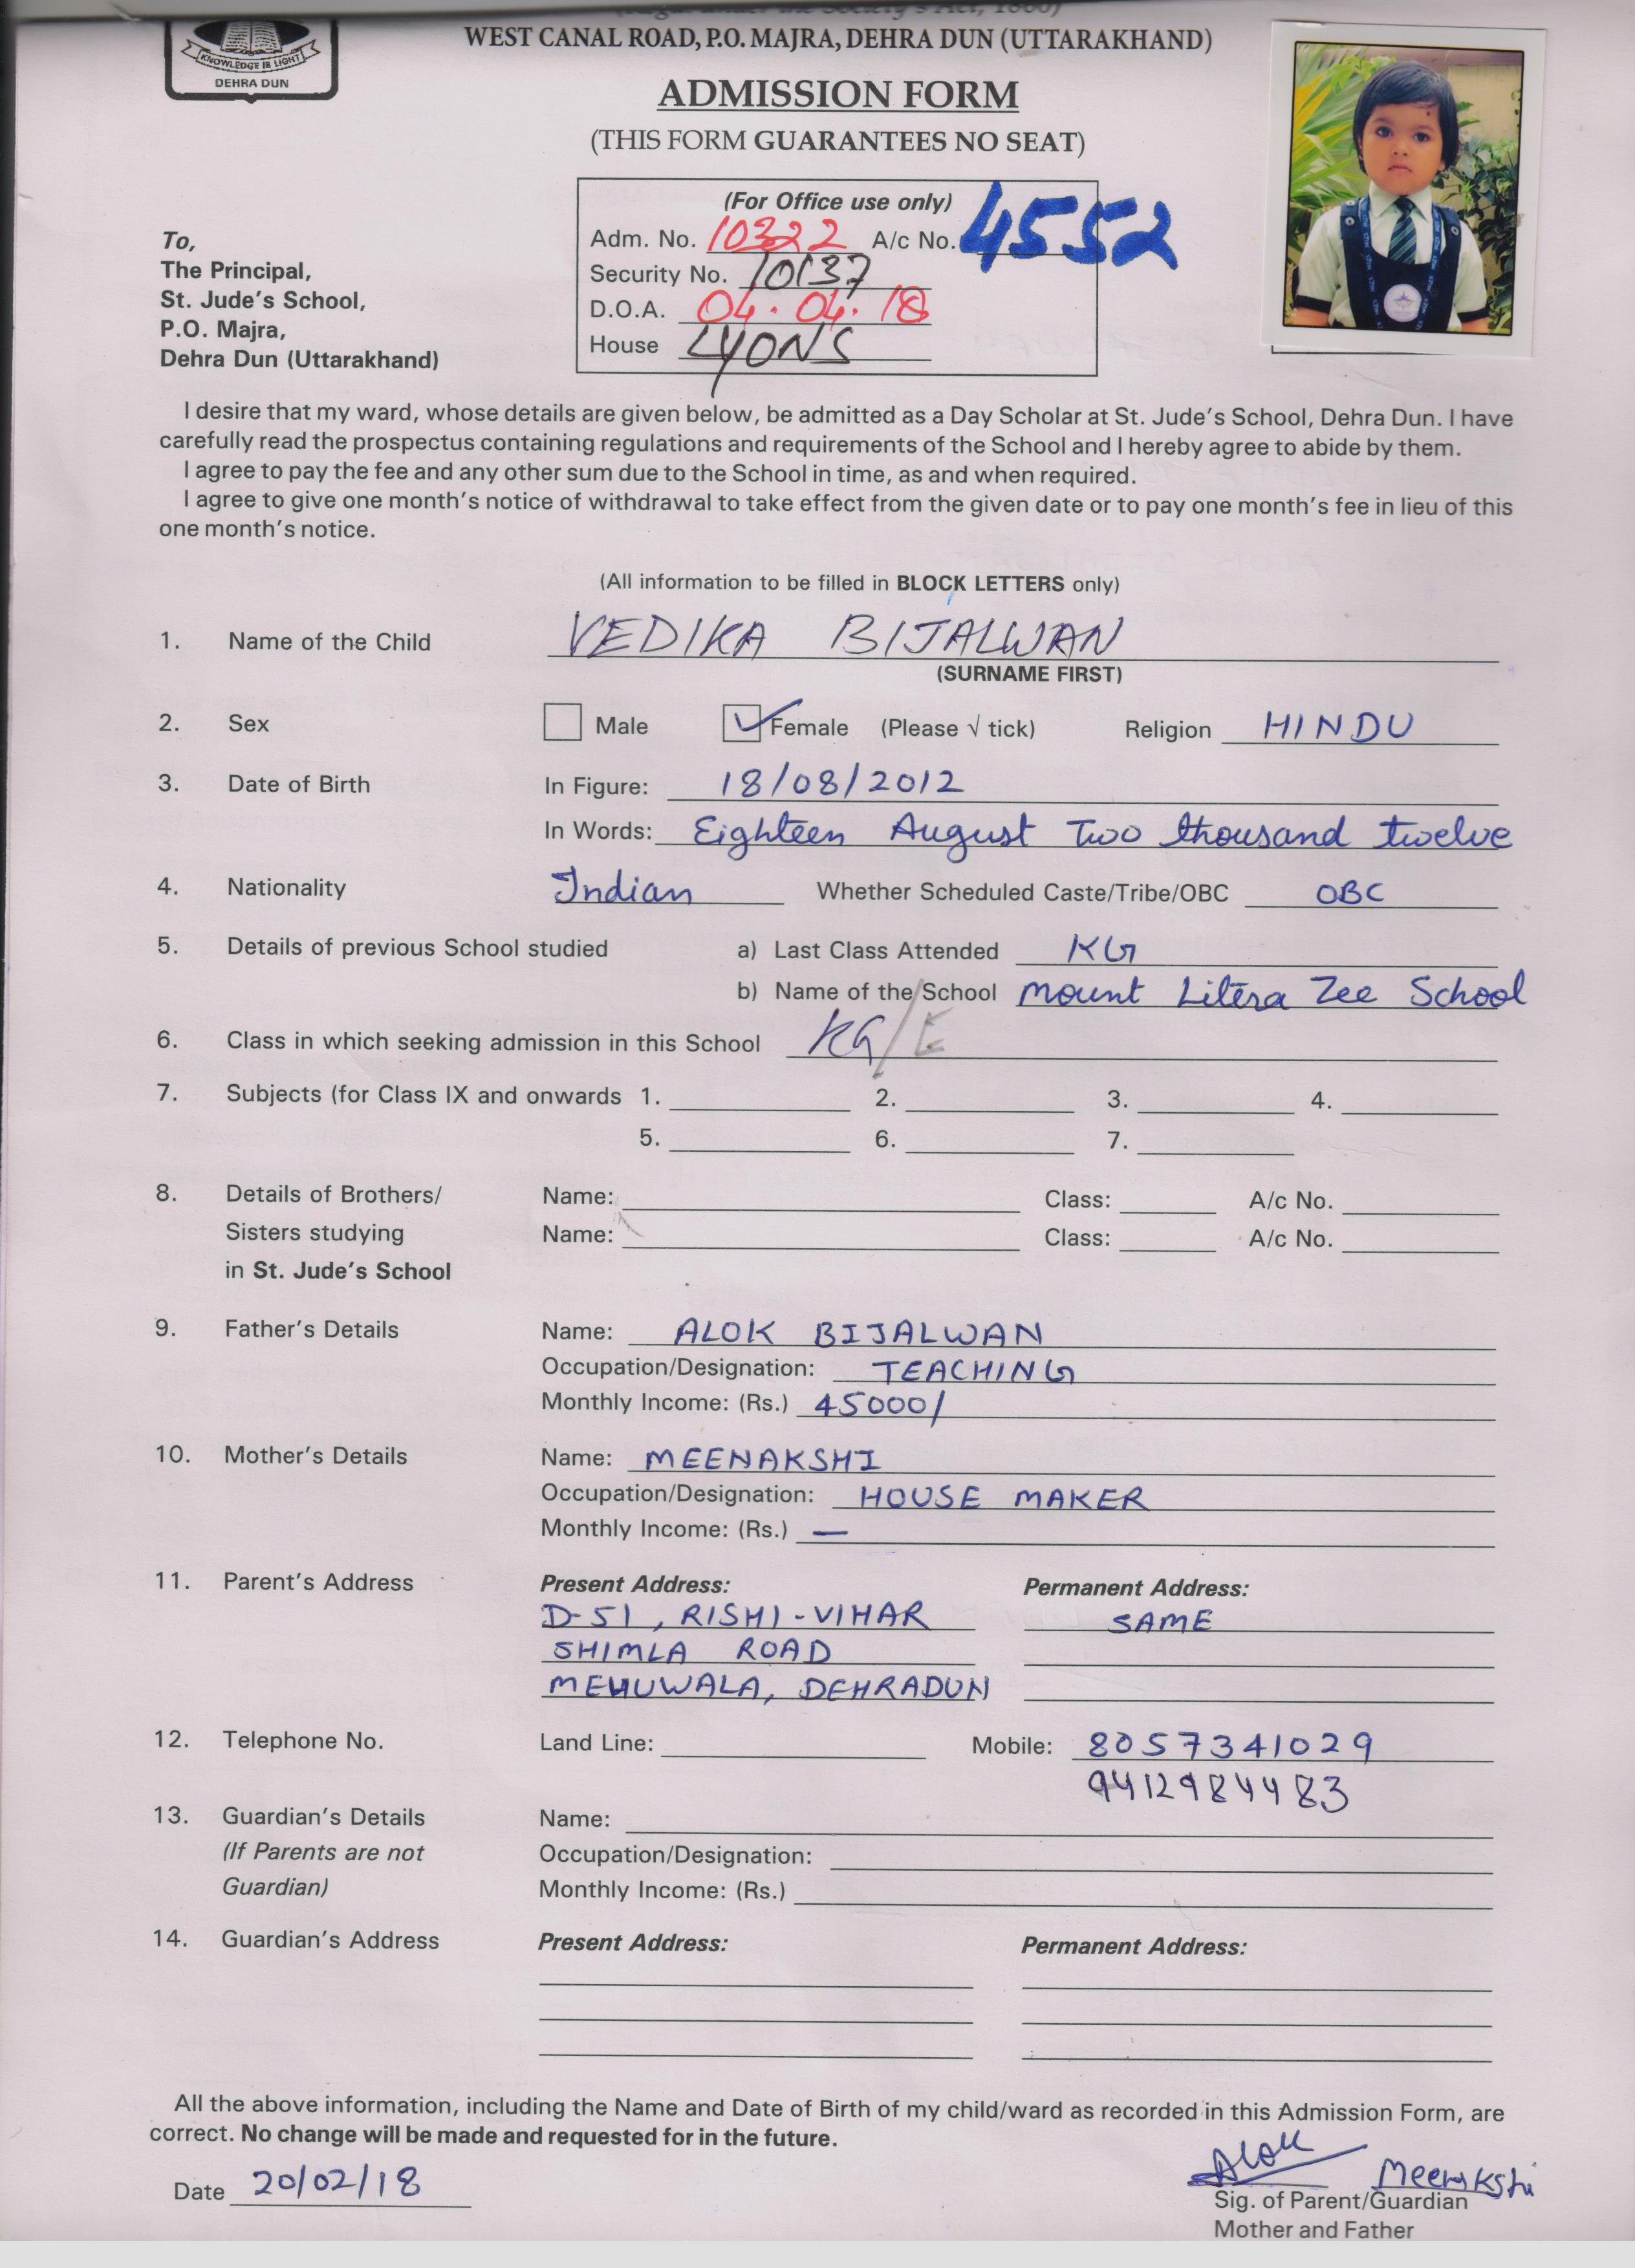 KNOWLEDGE IS LIGHT
DEHRA DUN
WEST CANAL ROAD, P.O. MAJRA, DEHRA DUN (UTTARAKHAND)
ADMISSION FORM
(THIS FORM GUARANTEES NO SEAT)
(For Office use only)
Adm. No. 10322 A/c No. 4552
Security No. 10137
D.O.A. 04.04.18
House LYONS
To,
The Principal,
St. Jude's School,
P.O. Majra,
Dehra Dun (Uttarakhand)
I desire that my ward, whose details are given below, be admitted as a Day Scholar at St. Jude's School, Dehra Dun. I have
carefully read the prospectus containing regulations and requirements of the School and I hereby agree to abide by them.
I agree to pay the fee and any other sum due to the School in time, as and when required.
I agree to give one month's notice of withdrawal to take effect from the given date or to pay one month's fee in lieu of this
one month's notice.
(All information to be filled in BLOCK LETTERS only)
1. Name of the Child VEDIKA BIJALWAN
(SURNAME FIRST)
2. Sex Male Female (Please √ tick) Religion HINDU
3. Date of Birth In Figure: 18/08/2012
In Words: Eighteen August Two thousand twelve
4. Nationality Indian Whether Scheduled Caste/Tribe/OBC OBC
5. Details of previous School studied a) Last Class Attended KG
b) Name of the School Mount Litera Zee School
6. Class in which seeking admission in this School KG/E
7. Subjects (for Class IX and onwards 1. 2. 3. 4.
5. 6. 7.
8. Details of Brothers/ Name: Class: A/c No.
Sisters studying Name: Class: A/c No.
in St. Jude's School
9. Father's Details Name: ALOK BIJALWAN
Occupation/Designation: TEACHING
Monthly Income: (Rs.) 45000/
10. Mother's Details Name: MEENAKSHI
Occupation/Designation: HOUSE MAKER
Monthly Income: (Rs.) —
11. Parent's Address Present Address: Permanent Address:
D-51, RISHI-VIHAR SAME
SHIMLA ROAD
MEHUWALA, DEHRADUN
12. Telephone No. Land Line: Mobile: 8057341029
9412984483
13. Guardian's Details Name:
(If Parents are not Occupation/Designation:
Guardian) Monthly Income: (Rs.)
14. Guardian's Address Present Address: Permanent Address:
All the above information, including the Name and Date of Birth of my child/ward as recorded in this Admission Form, are
correct. No change will be made and requested for in the future.
Date 20/02/18 Alok Meenakshi
Sig. of Parent/Guardian
Mother and Father